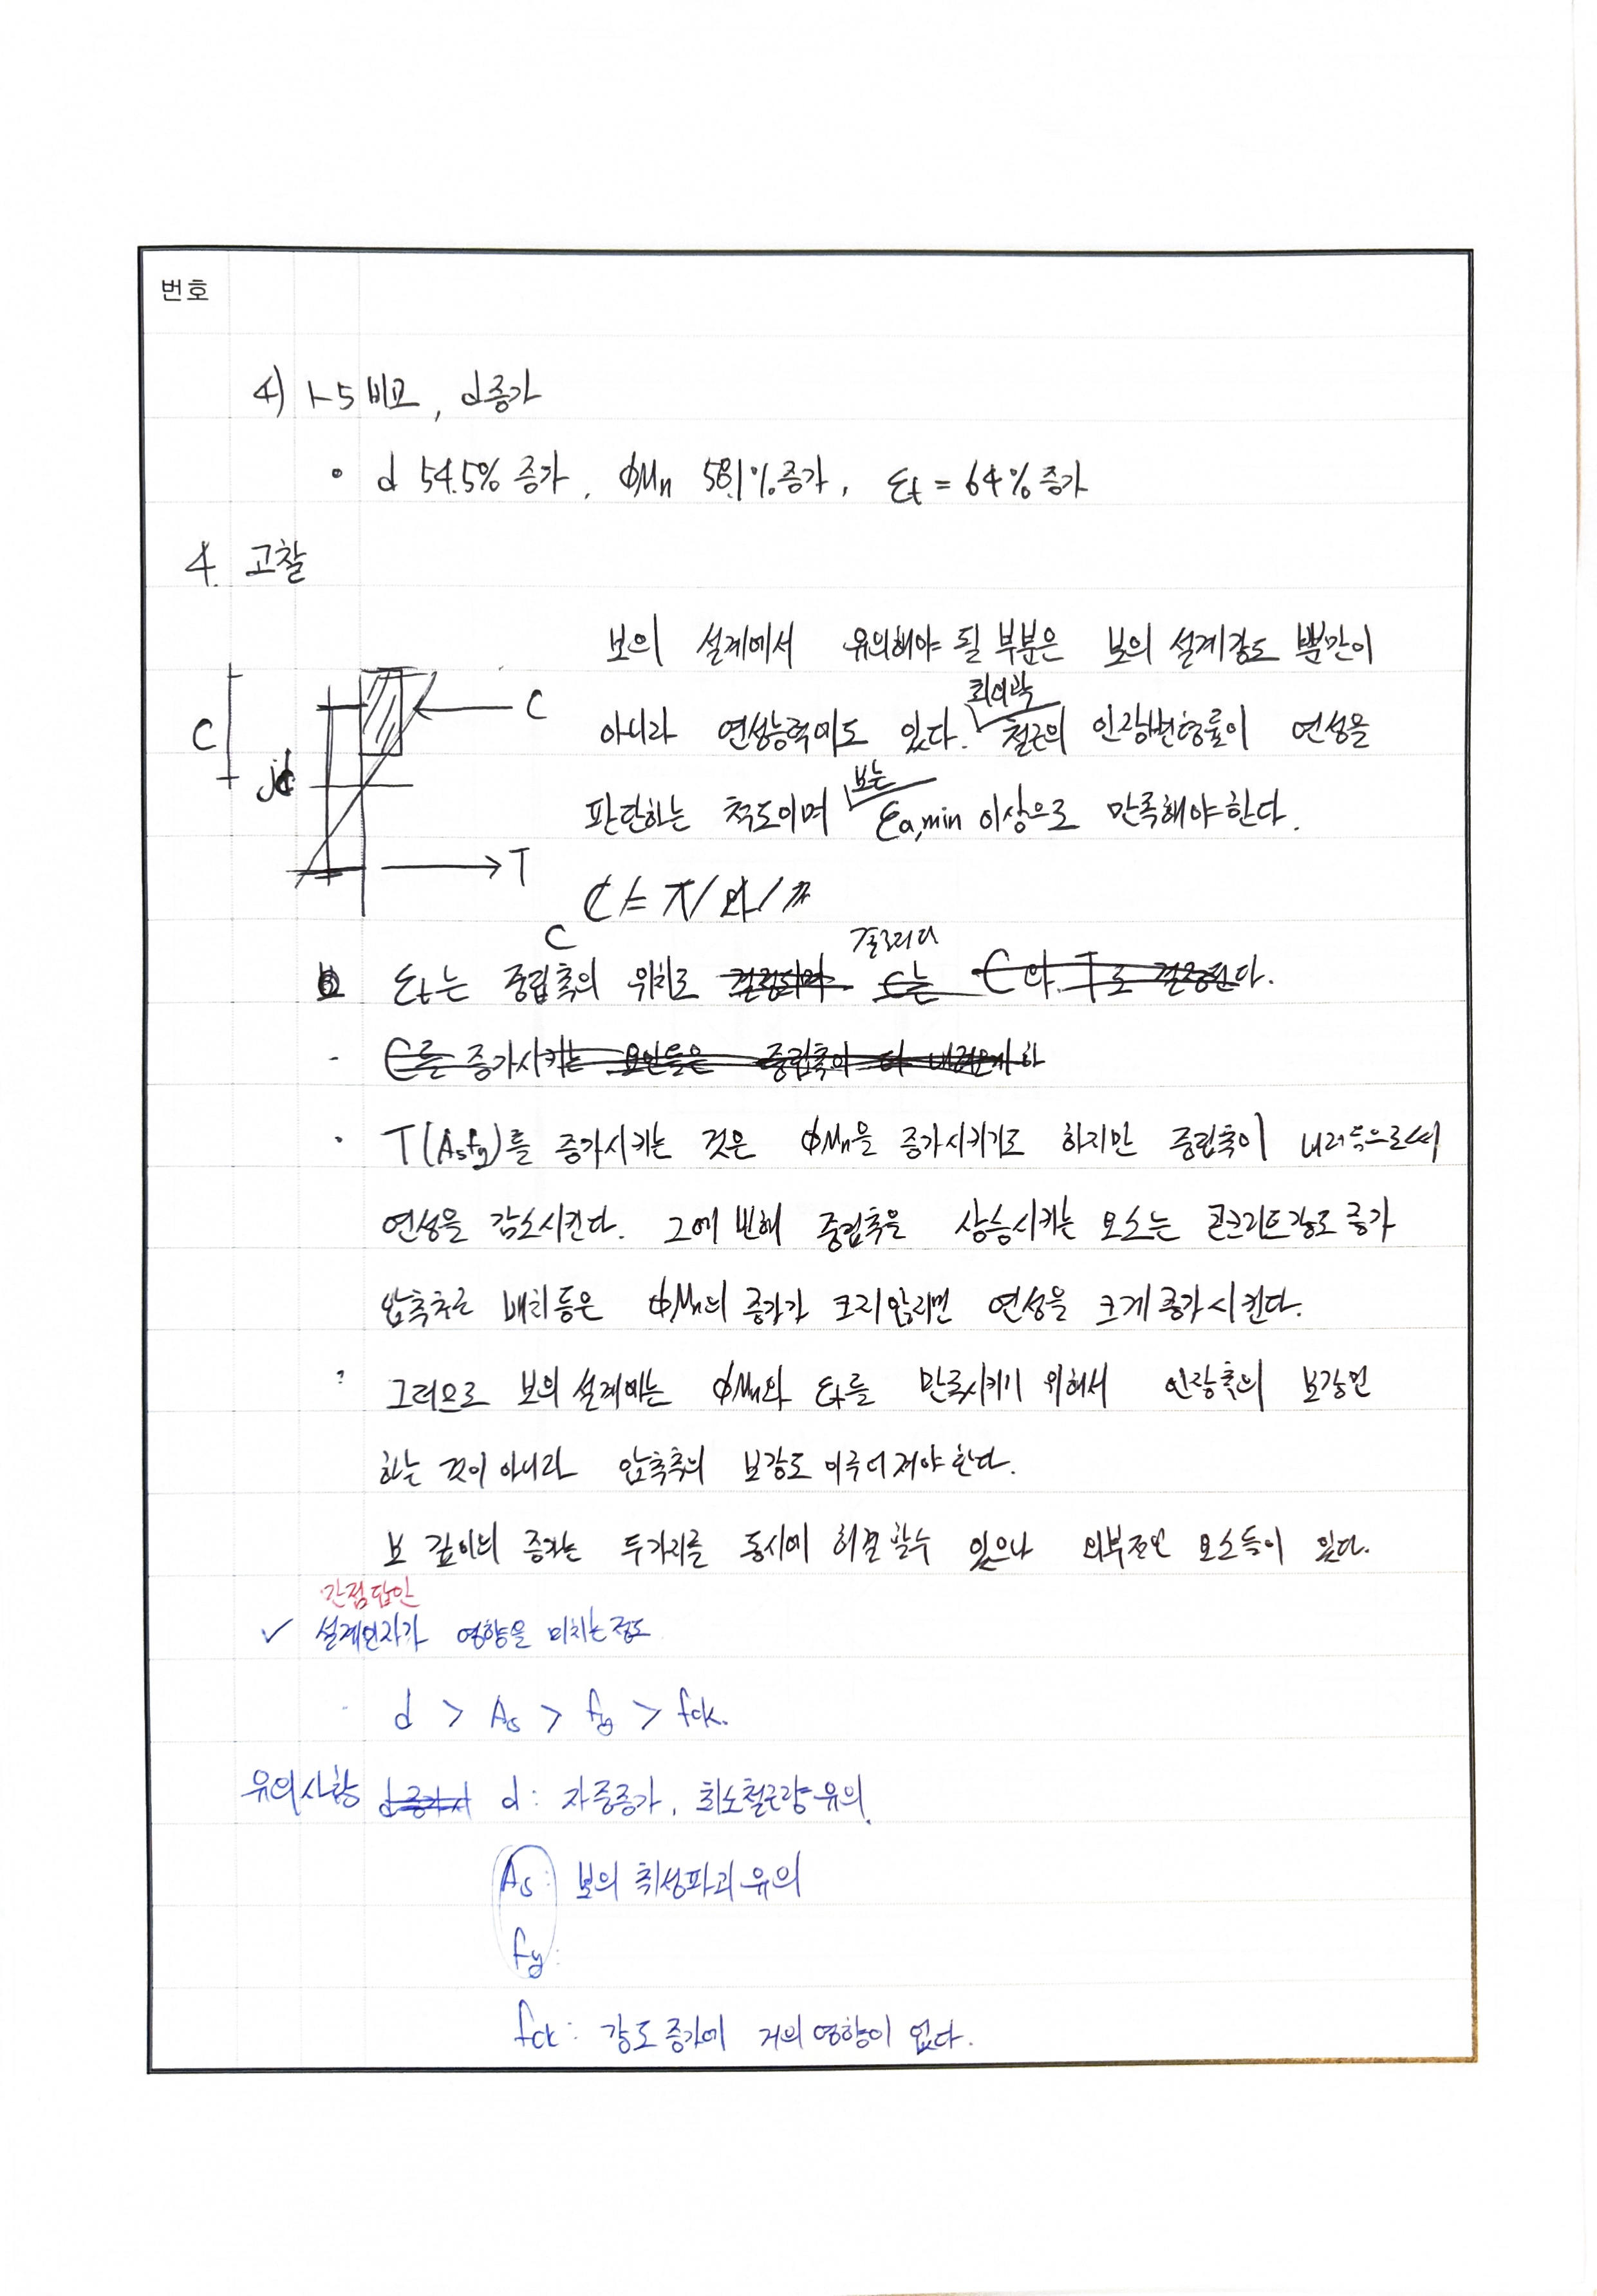 번호
4) 1-5 비교, d증가
• d 54.5% 증가, ϕMn 58.1%증가, εt = 64%증가
4. 고찰
보의 설계에서 유의해야 될 부분은 보의 설계강도 뿐만이
최외곽
아니라 연성능력에도 있다. 철근의 인장변형률이 연성을
보는
판단하는 척도이며 εa,min 이상으로 만족해야한다.
C
C
jd
T
C = T
C
εt는 중립축의 위치로 결정되며 c는 C와 T로 결정된다.
- C를 증가시키는 요인들은 중립축이 더 내려오게 하
· T(Asfy)를 증가시키는 것은 ϕMn을 증가시키기도 하지만 중립축이 내려감으로써
연성을 감소시킨다. 그에 반해 중립축을 상승시키는 요소는 콘크리트강도 증가
압축철근 배치등은 ϕMn의 증가가 크지않지만 연성을 크게증가시킨다.
그러므로 보의 설계에는 ϕMn와 εt를 만족시키기 위해서 인장측의 보강만
하는 것이 아니라 압축측의 보강도 이루어져야한다.
보 깊이의 증가는 두가지를 동시에 해결 할수 있으나 외부적인 요소들이 있다.
관점답안
✓ 설계인자가 영향을 미치는정도
d > As > fy > fck.
유의사항 d증가시 d: 자중증가, 최소철근량유의.
As: 보의 취성파괴유의
fy:
fck: 강도증가에 거의영향이 없다.